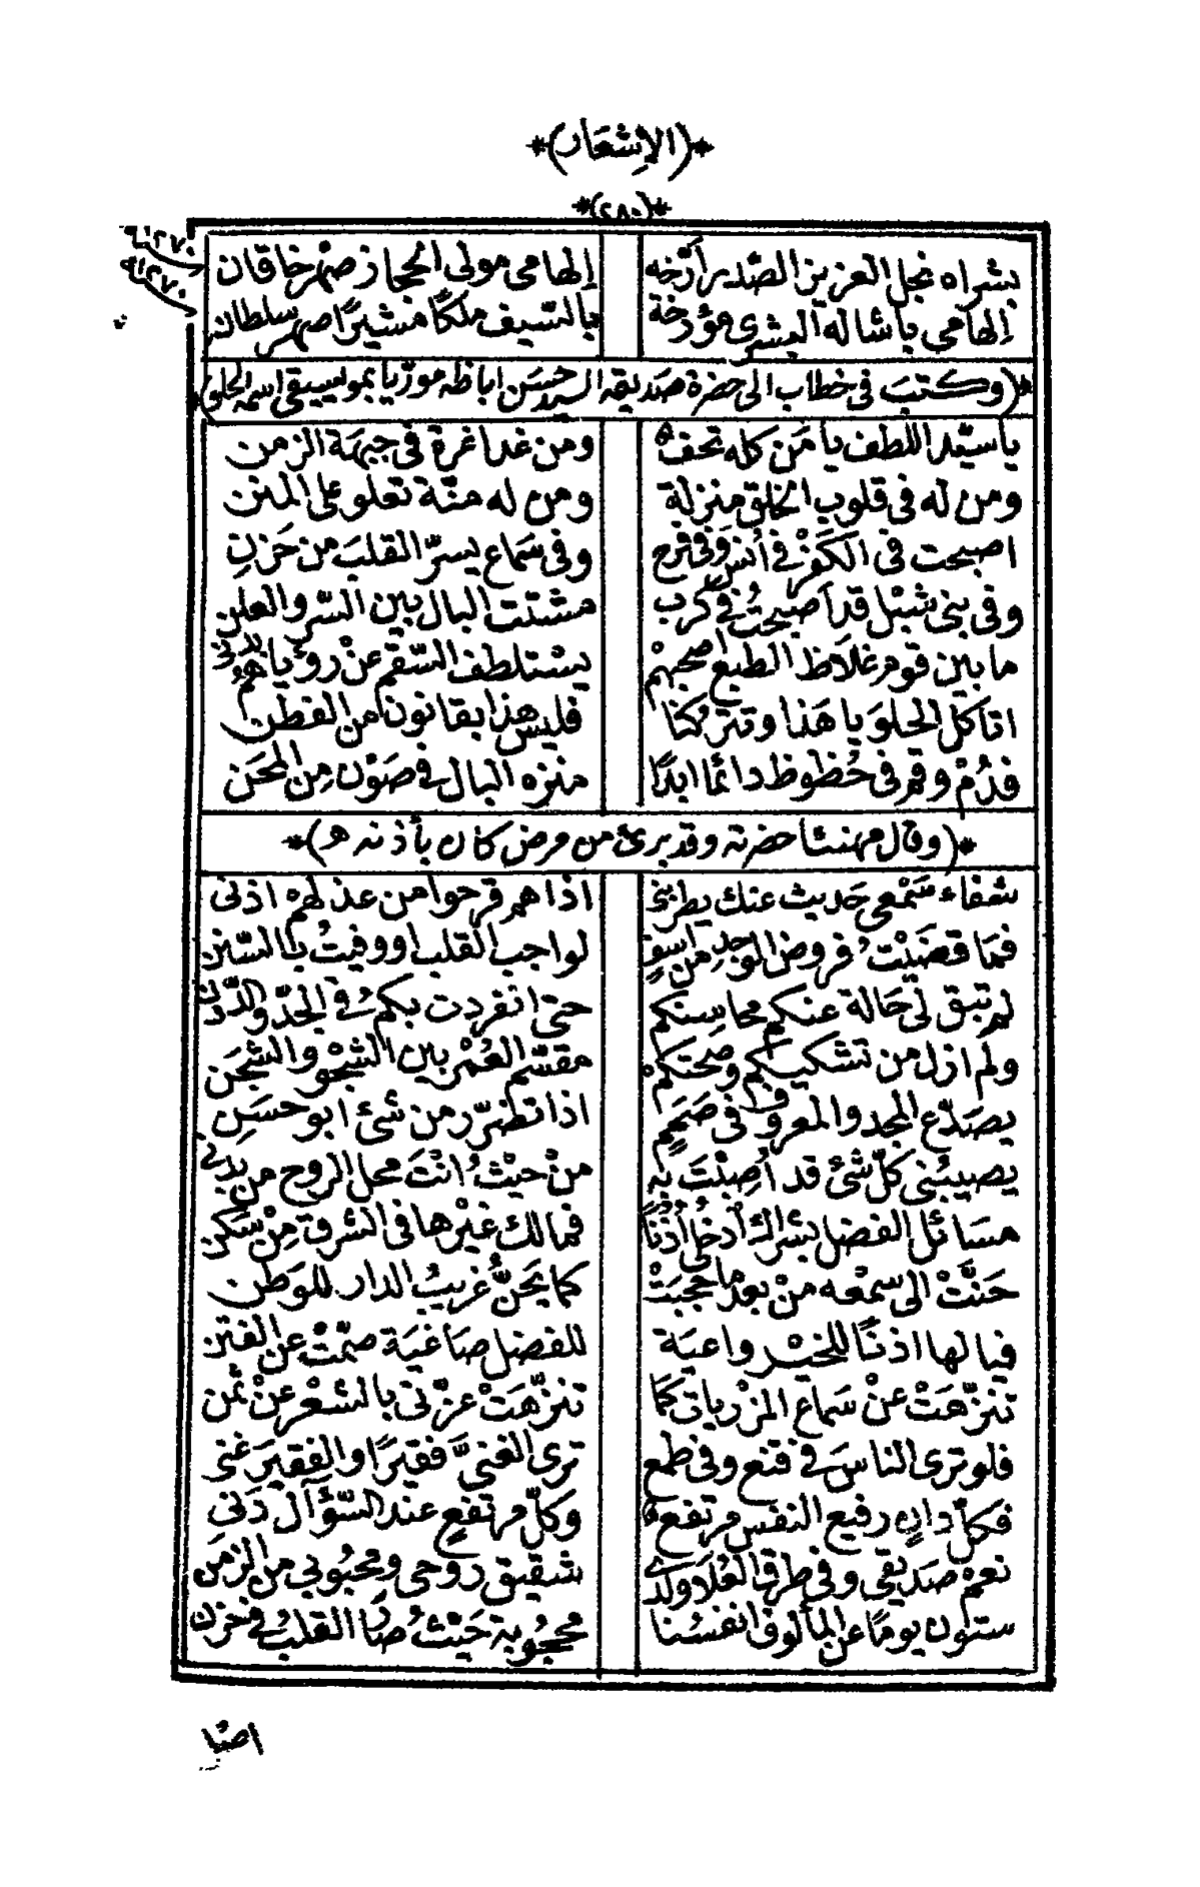 *(الإشعار)*
*(٢٨٠)*
بشراه نجل العزيز الصّدير أرّخه إلهامى مولى الحجاز صهر خاقان ١٢٧٠
إلهامى باشا له البشرى مؤرخة بالسّيف ملكًا مشيرًا صهر سلطان ١٢٧٠
*(وكتب فى خطاب الى حضرة صديقه السيد حسن اباظه موزيا بموسيقى اسمه الحلو)*
ياسيّد اللطف يا مَن كله تحف ومن غدا غرة فى جبهة الزمن
ومن له فى قلوب الخلق منزلة ومن له منّة تعلو على المنن
اصبحت فى الكَفْر فى أنس وَفى فرح وفى سَماع يسرّ القلبَ من حَزنِ
وفى بنى شبْل قد أصبحتُ فى كرب مشتت البال بين السّر والعلن
ما بين قوم غلاظ الطبع اصحبهْم يستلطف السّقم عنْ رؤياهمُ بدنى
اتأكل الحلوَ يا هَذا وتتركنا فليس هذا بقانون من الفطن
فدُمْ وقم فى حُظوظ دائما ابدًا منزه البال فى صَوْن مِن المحَن
*(وقال مهنئا حضرته وقد برئ من مرض كان بأذنه هو)*
شفاء سَمْعى حَديث عنك يطربنى اذا همو قرحوا من عذلهمْ اذنى
فمَا قضَيْتُ فروض الوجدِ من اسفٍ لواجب القلب او وفيتُ بالسّنن
لم تبق لى حَالة عنكم محاسِنكم حتى انفردت بكمُ فى الجدّ والدّدن
ولم ازل من تشكيكم وصحتكمْ مقسّم العُمْر بين الشّجْو والشجَن
يصَدّع المجد والمعروف فى صَمَمٍ اذا تضرّر من شئ ابو حسَنِ
يصيبُنى كلّ شئ قد اُصِبْتَ به منْ حيْثُ انْتَ محل الروح من بدنى
مسَائل الفضل بشراك اُدخُلى اُذُنًا فمالك غيْرها فى الشرق مِنْ سَكن
حَنَّتْ الى سمْعه منْ بعد ما حجبَتْ كما يَحنُّ غريبُ الدار للوَطن
فيا لها اذنًا للخيْر واعيَة للفضل صَاغيَة صمّتْ عن الفتن
تنزّهَتْ عنْ سَماع المزْريات كمَا تنزّهَتْ عزّتى بالشعْر عنْ ثمن
فلو ترى الناسَ فى قنع وفى طمع ترى الغنىَّ فقيرًا والفقيرَ غنى
فكلّ دانٍ رفيع النفس مرتفعٌ وكلّ مرتفعٍ عند السّؤال دَنى
نعمْ صديقى وفى طرق العُلَا ولدى شقيق روحى ومحبُوبى من الزمَن
ستلون يومًا عن المألوف انفسُنا محجُوبة حَيْثُ صَارَ القلبُ فى حزن
اصْبا